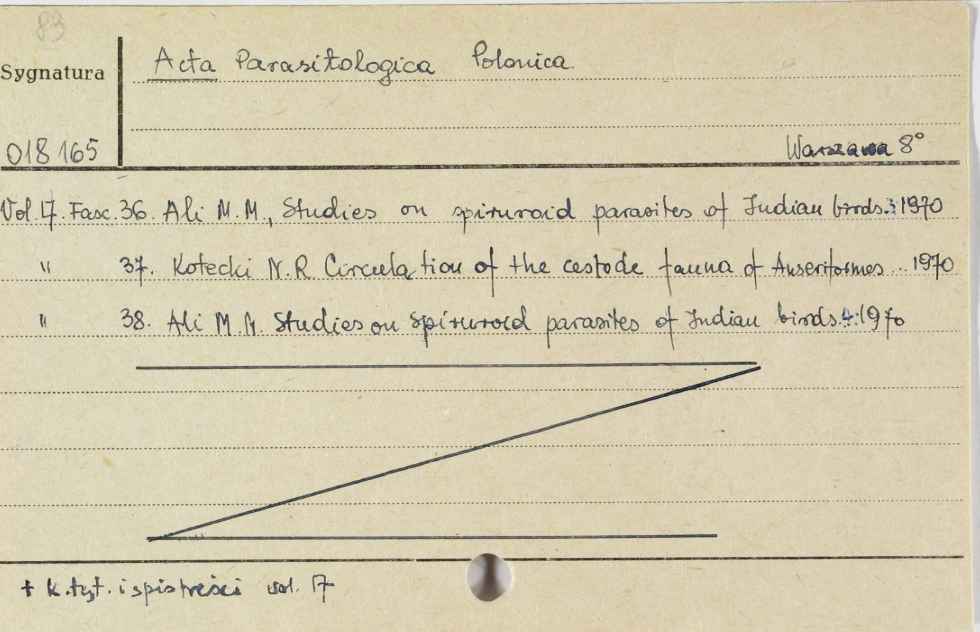 83
Sygnatura
Acta Parasitologica Polonica
018165
Warszawa 8°
Vol.17. Fasc.36. Ali M.M., Studies on spiruroid parasites of Indian birds.3.1970
" 37. Kotecki N.R. Circulation of the cestode fauna of Anseriformes...1970
" 38. Ali M.M. Studies on Spiruroid parasites of Indian birds.4.1970
+ k.tyt. i spis treści vol. 17